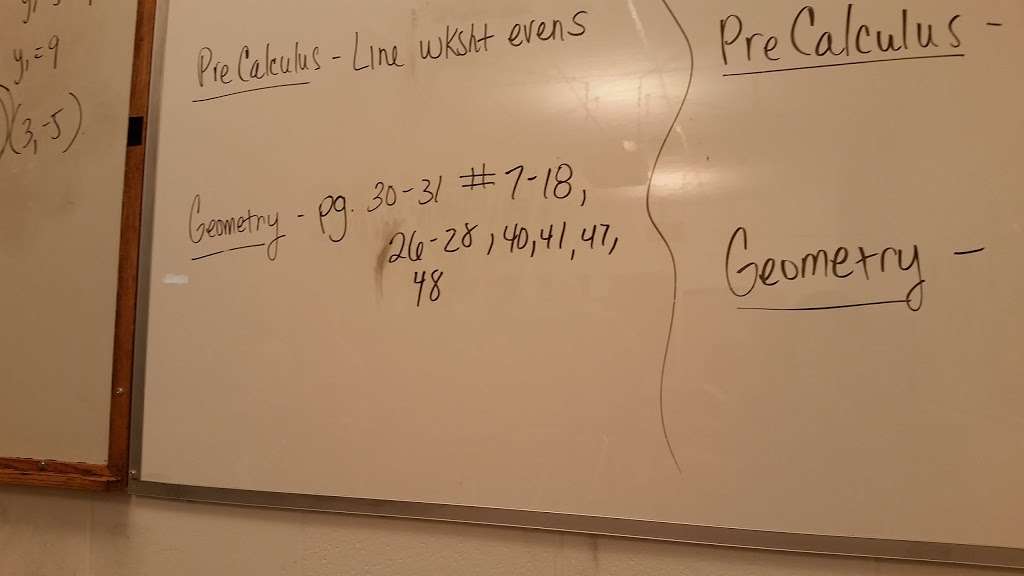 y₁=9
(3,-5)
PreCalculus - Line wksht evens
Geometry - pg. 30-31 #7-18,
26-28, 40, 41, 47,
48
PreCalculus -
Geometry -